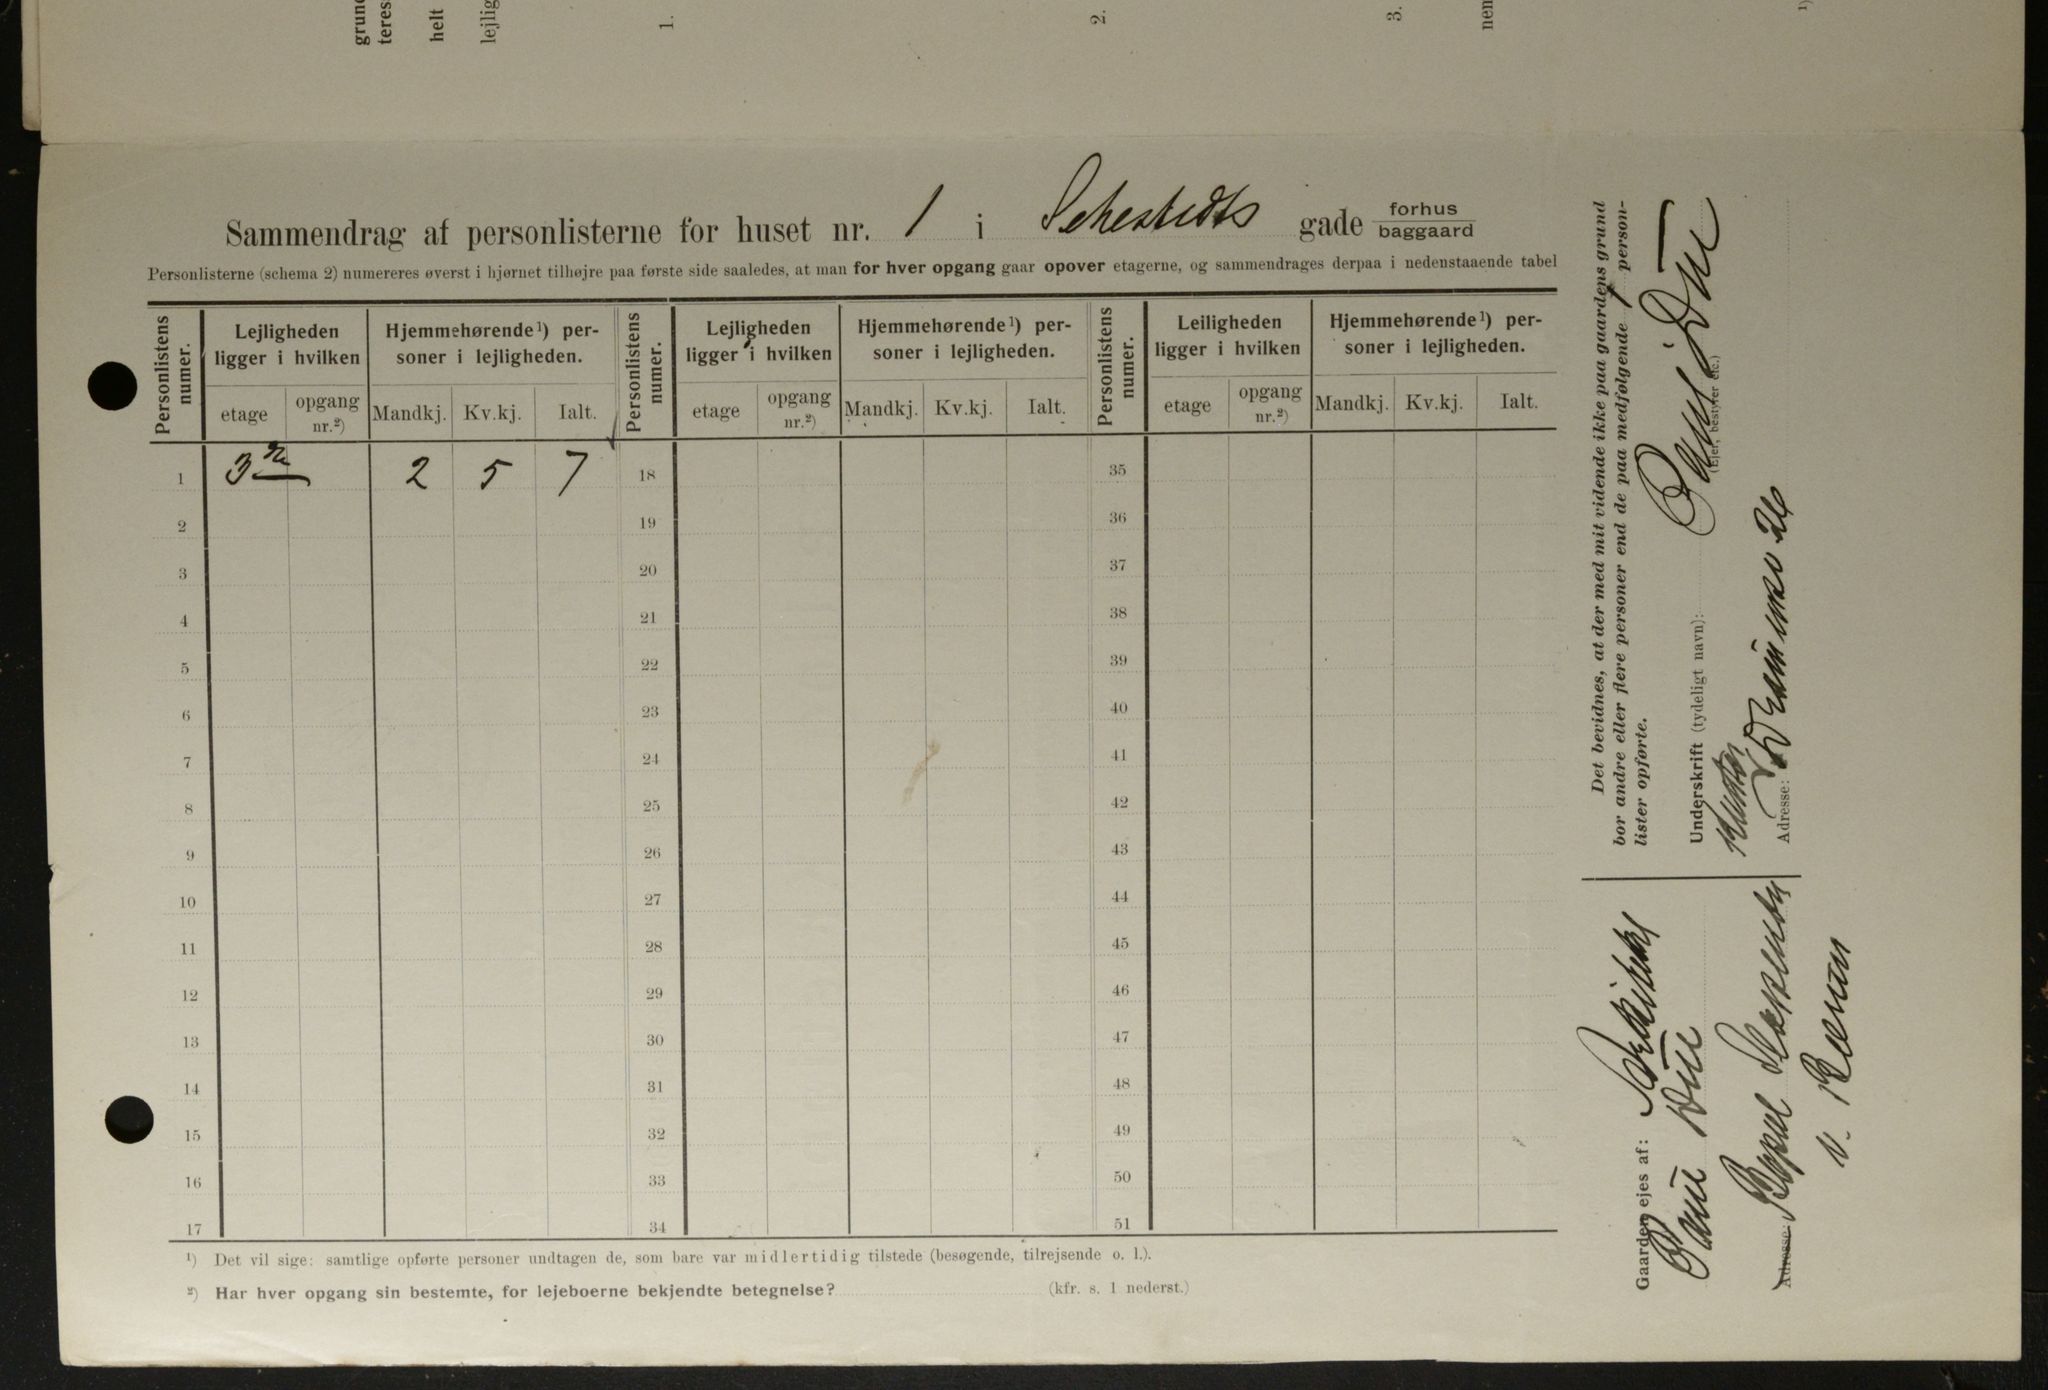 grund
teres
helt
lejlig
1.
2.
3.
nem
1)
Sammendrag af personlisterne for huset nr. 1 i Sehestedts gade forhus
baggaard
Personlisterne (schema 2) numereres øverst i hjørnet tilhøjre paa første side saaledes, at man for hver opgang gaar opover etagerne, og sammendrages derpaa i nedenstaaende tabel
Personlistens numer.
Lejligheden ligger i hvilken
Hjemmehørende¹) personer i lejligheden.
Personlistens numer.
Lejligheden ligger i hvilken
Hjemmehørende¹) personer i lejligheden.
Personlistens numer.
Leiligheden ligger i hvilken
Hjemmehørende¹) personer i lejligheden.
etage opgang nr.²) Mandkj. Kv.kj. Ialt. etage opgang nr.²) Mandkj. Kv.kj. Ialt. etage opgang nr.²) Mandkj. Kv.kj. Ialt.
1 3 2 5 7 18 35
2 19 36
3 20 37
4 21 38
5 22 39
6 23 40
7 24 41
8 25 42
9 26 43
10 27 44
11 28 45
12 29 46
13 30 47
14 31 48
15 32 49
16 33 50
17 34 51
¹) Det vil sige: samtlige opførte personer undtagen de, som bare var midlertidig tilstede (besøgende, tilrejsende o. l.).
²) Har hver opgang sin bestemte, for lejeboerne bekjendte betegnelse? (kfr. s. 1 nederst.)
Det bevidnes, at der med mit vidende ikke paa gaardens grund
bor andre eller flere personer end de paa medfølgende 1 person-
lister opførte.
Underskrift (tydeligt navn): Paul Due
(Ejer, bestyrer etc.)
Adresse: 26
Gaarden ejes af:
Paul Due
Adresse: